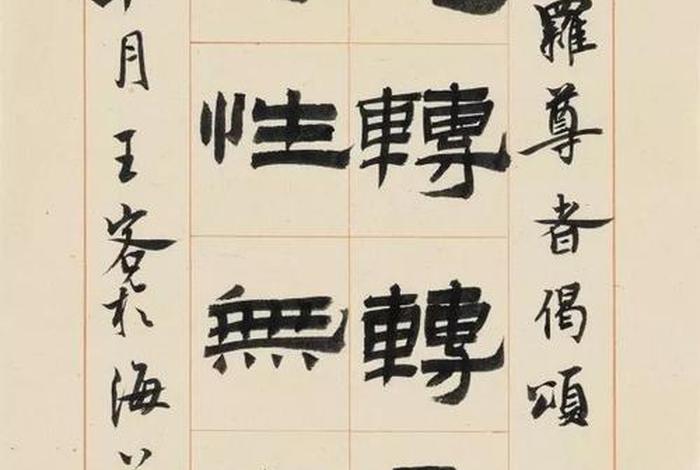 羅尊者偈頌
轉轉
性無
月王於海